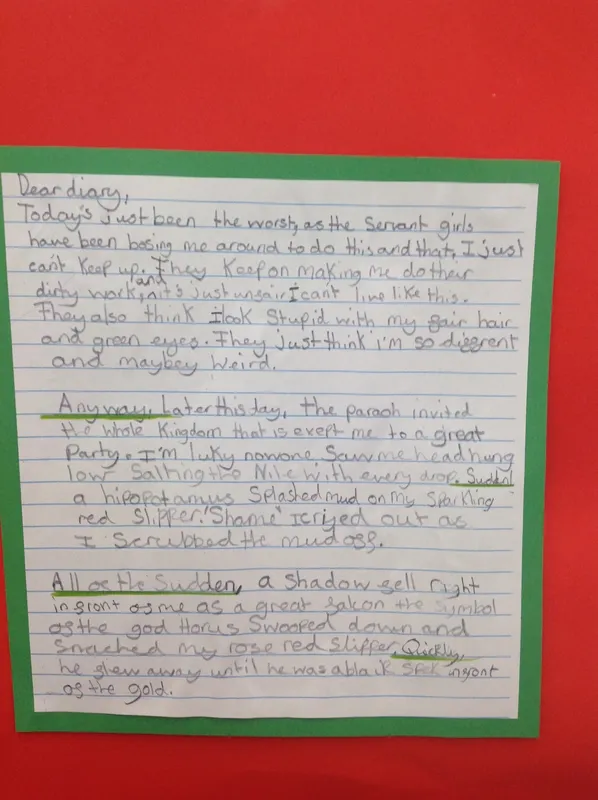 Dear diary,
Today's just been the worst, as the servant girls
have been bosing me around to do this and that, I just
can't keep up. They keep on making me do their
dirty work, and it's just unfair I can't live like this.
They also think I look stupid with my fair hair
and green eyes. They just think i'm so different
and maybey weird.
Anyway, Later this day, the paraoh invited
the whole kingdom that is exept me to a great
party. I'm luky nowone saw me head hung
low Salting the Nile with every drop. Suddenl
a hipopotamus splashed mud on my sparkling
red slipper. 'Shame' I criyed out as
I scrubbed the mud off.
All of the Sudden, a shadow fell right
infront of me as a great falcon the symbol
of the god Horus swooped down and
snached my rose red slipper. Quickly,
he flew away until he was a black spek infront
of the gold.